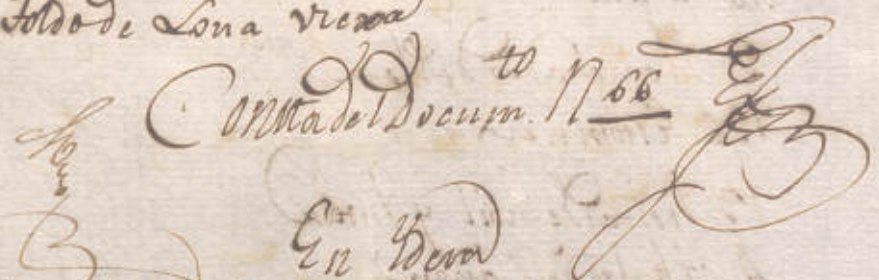 Toldo de Lona viexa
Consta del Docum.to N 66
En Ydem